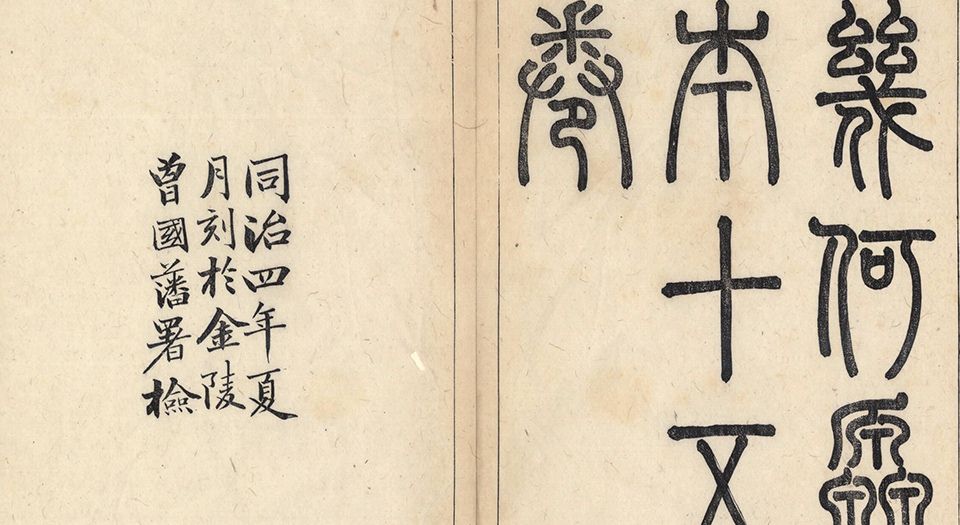 幾何原
本十五
卷
同治四年夏
月刻於金陵
曾國藩署檢